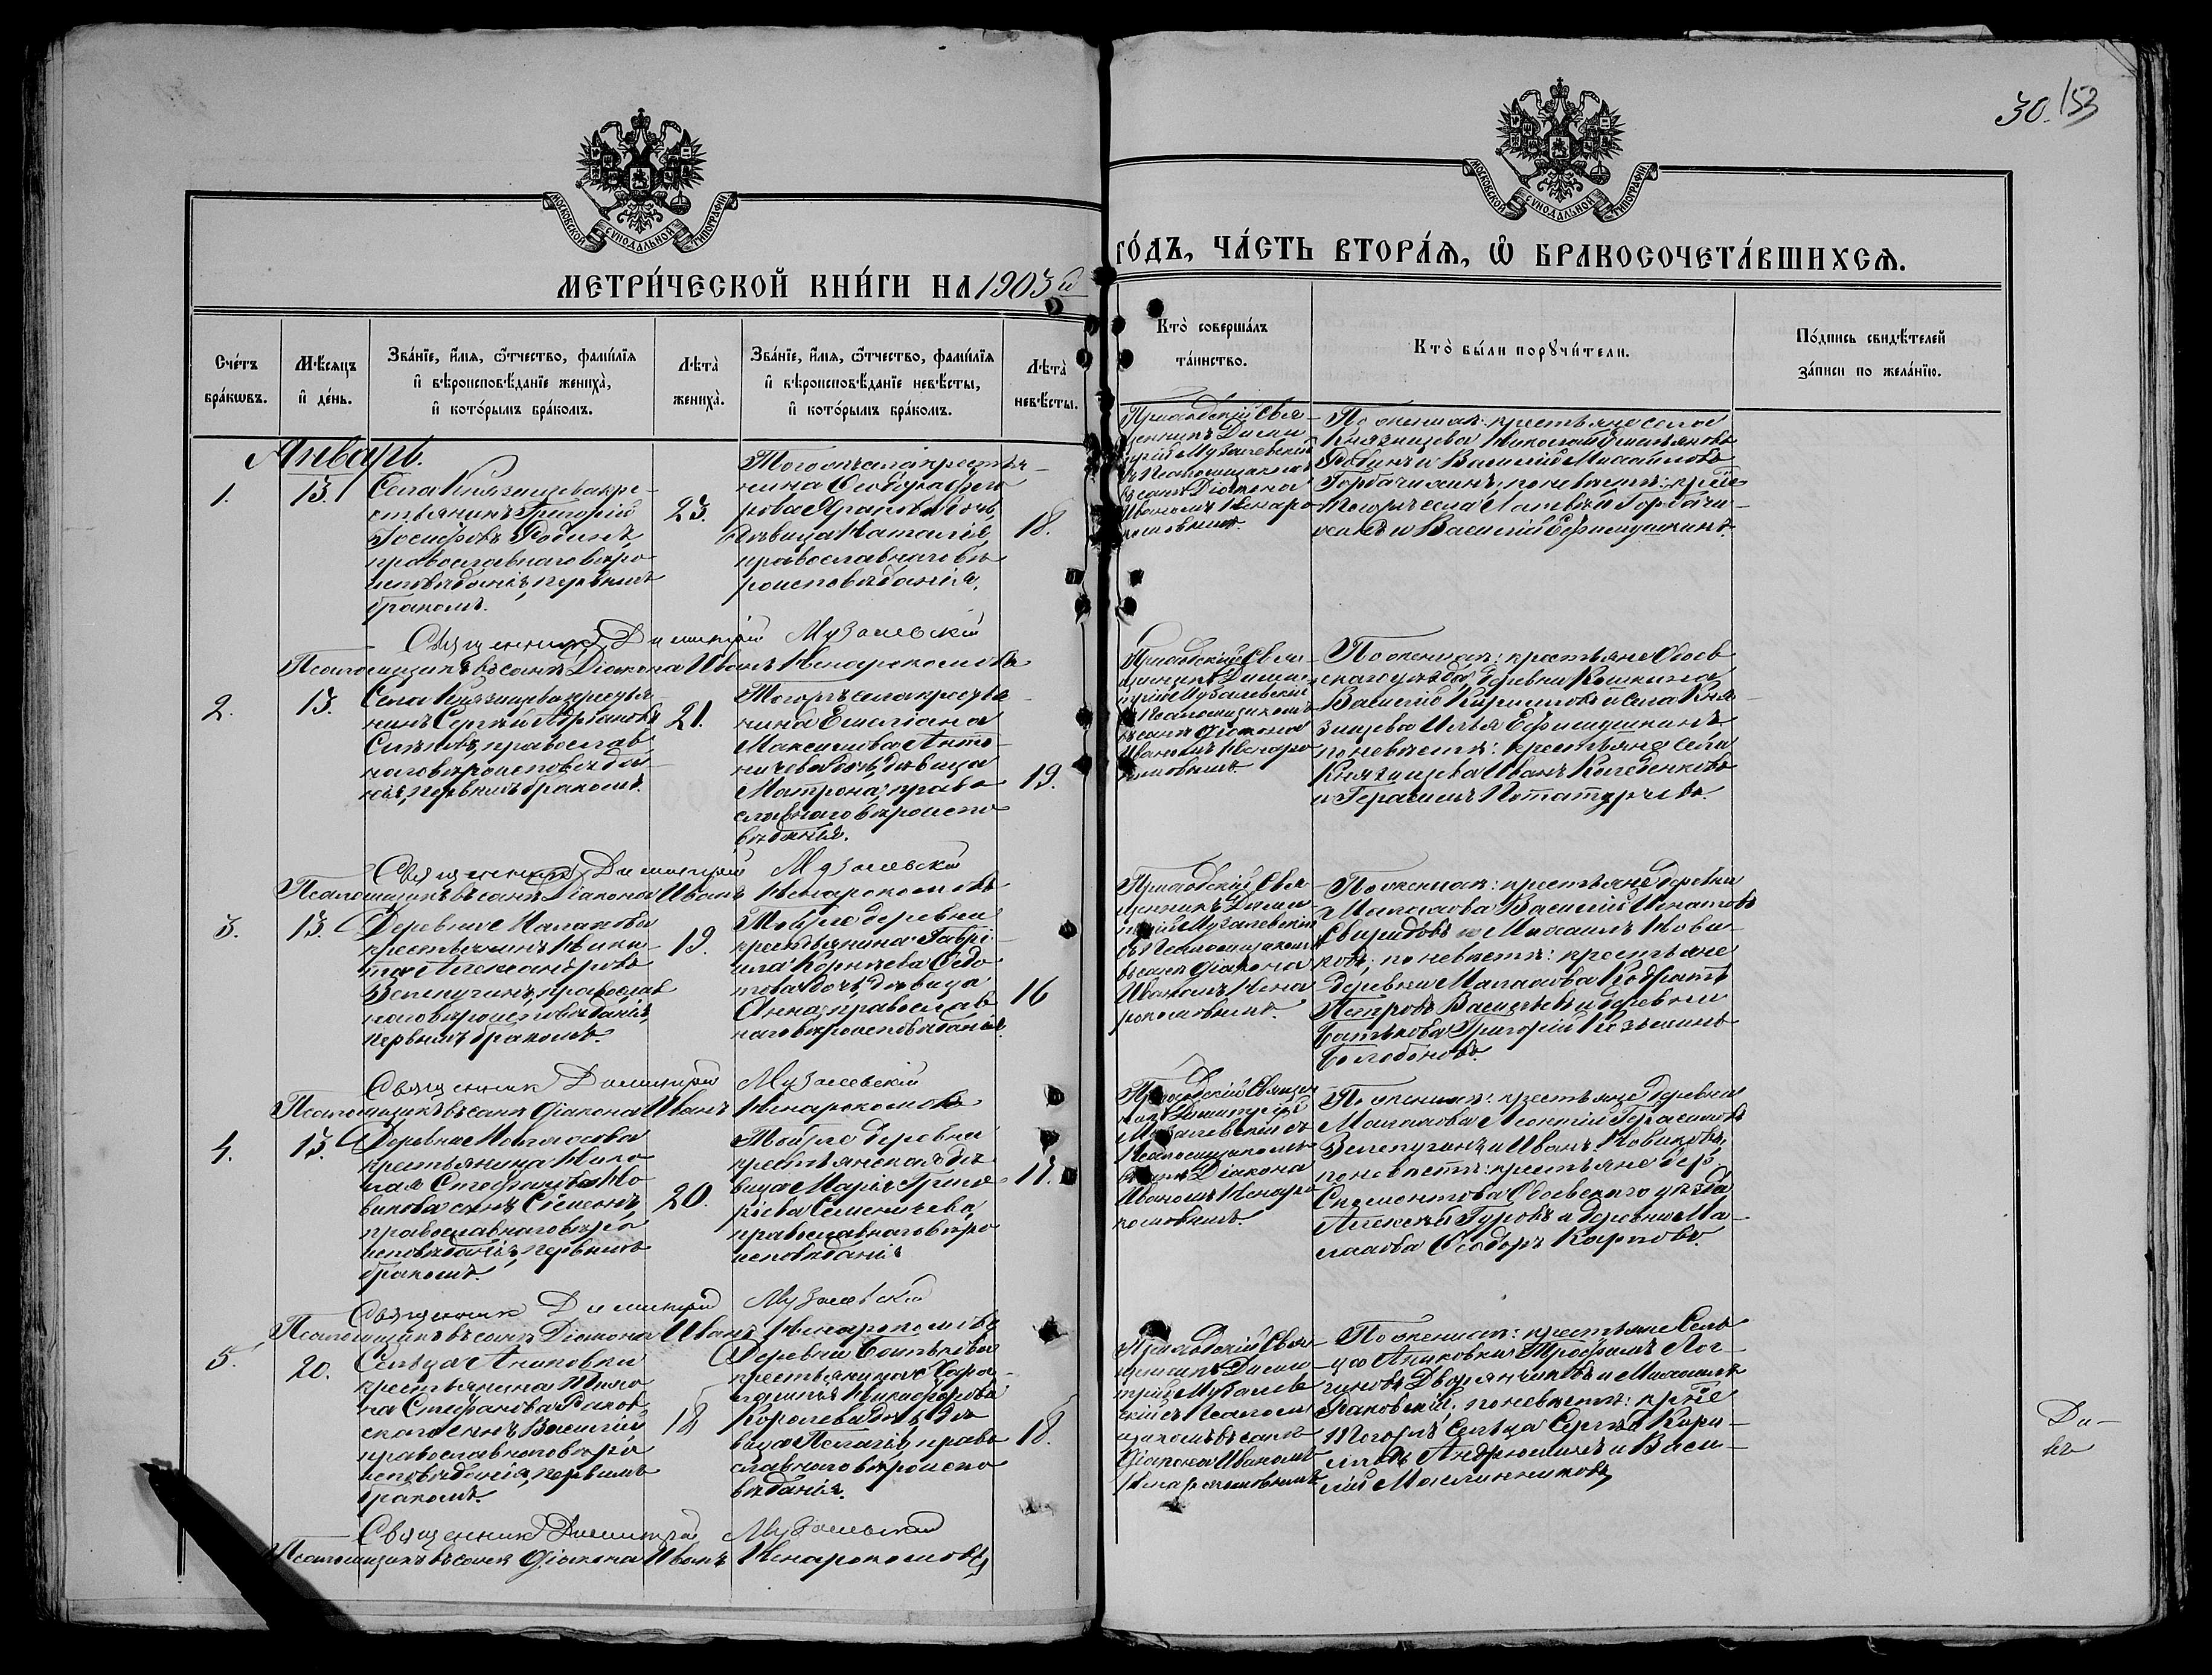 30. 153
МОСКОВСКОЙ СѴНОДАЛЬНОЙ ТИПОГРАФІИ
МОСКОВСКОЙ СѴНОДАЛЬНОЙ ТИПОГРАФІИ
МЕТРИ́ЧЕСКОЙ КНИ́ГИ НА 1903й
ГО́ДЪ, ЧА́СТЬ ВТОРА́Ѧ, Ѽ БРАКОСОЧЕТА́ВШИХСѦ.
Сче́тъ
бра́кѡвъ.
Мѣ́сѧцъ
и҆ де́нь.
Зва́нїе, и҆́мѧ, ѻ҆́тчество, фами́лїѧ
и҆ вѣроисповѣ́данїе жениха̀,
и҆ кото́рымъ бра́комъ.
Лѣта̀
жениха̀.
Зва́нїе, и҆́мѧ, ѻ҆́тчество, фами́лїѧ
и҆ вѣроисповѣ́данїе невѣ́сты,
и҆ кото́рымъ бра́комъ.
Лѣта̀
невѣ́сты.
Кто̀ соверша́лъ
та́инство.
Кто̀ бы́ли порꙋчи́тели.
По́дпись свидѣ́телей
за́писи по жела́нїю.
Январь.
1.
13.
Села Княжищева кре-
стьянинъ Григорій
Іосифовъ Родинъ
православнаго вѣро
исповѣданія, первымъ
бракомъ.
23.
Того же села крестья-
нина
дочь,
дѣвица Наталія,
православнаго вѣ
роисповѣданія.
18.
Приходскій Свя-
щенникъ Дими
трій Музалевскій
съ Псаломщикомъ
въ санѣ Діакона
Иваномъ Ненаро
комовымъ.
По женихѣ: крестьяне села
Княжищева Николай Емельяновъ
Родинъ и Василій Михайловъ
по невѣстѣ: кр-не
того же села
и Василій Ефимушкинъ.
Священникъ Димитрій Музалевскій
Псаломщикъ въ санѣ Діакона Иванъ Ненарокомовъ
2.
13.
Села Княжищева крестья-
нинъ Сергѣй
православ
наго вѣроисповѣда-
нія, первымъ бракомъ.
21.
Того же села крестья-
нина Емеліана
Максимова
дочь, дѣвица
Матрона, право
славнаго вѣроиспо
вѣданія.
19.
Приходскій Свя-
щенникъ Дими
трій Музалевскій
съ Псаломщикомъ
въ санѣ діакона
Иваномъ Ненаро
комовымъ.
По женихѣ: крестьяне Обоев
скаго уѣзда деревни
Василій Кирилловъ и села Кня
жищева Илья Ефимушкинъ
по невѣстѣ: крестьяне села
Княжищева Иванъ
и Герасимъ
Священникъ Димитрій Музалевскій
Псаломщикъ въ санѣ Діакона Иванъ Ненарокомовъ
3.
13.
Деревни Малахова
крестьянинъ Ники
та Александровъ
Зепепугинъ, православ
наго вѣроисповѣданія,
первымъ бракомъ.
19.
Той же деревни
крестьянина Гаврі-
ила Корнѣева Ѳедо
това дочь, дѣвица
Анна, православ
наго вѣроисповѣданія.
16
Приходскій Свя
щенникъ Дими
трій Музалевскій
съ Псаломщикомъ
въ санѣ діакона
Иваномъ Нена
рокомовымъ.
По женихѣ: крестьяне деревни
Малахова Василій Игнатовъ
Свиридовъ и Михаилъ Нови-
ковъ; по невѣстѣ: крестьяне
деревни Малахова Кодратъ
Петровъ Васильевъ и деревни
Батькова Григорій Козьминъ
Священникъ Димитрій Музалевскій
Псаломщикъ въ санѣ діакона Иванъ Ненарокомовъ
4.
13.
Деревни Малахова
крестьянина Нико
лая Стефанова Но
викова сынъ Симеонъ,
православнаго вѣро
исповѣданія, первымъ
бракомъ.
20.
Той же деревни
крестьянская дѣ
вица Марія Григо
рьева Семенычева,
православнаго вѣро
исповѣданія
17.
Приходскій Священ
никъ Димитрій
Музалевскій съ
Псаломщикомъ
въ санѣ Діакона
Иваномъ Ненаро
комовымъ.
По женихѣ: крестьяне деревни
Малахова Леонтій Герасимовъ
Зепепугинъ и Иванъ Новиковъ,
по невѣстѣ: крестьяне дер.
Обоевскаго уѣзда
Алексѣй Гуровъ и деревни Ма-
лахова Ѳеодоръ Карповъ.
Священникъ Димитрій Музалевскій
Псаломщикъ въ санѣ Діакона Иванъ Ненарокомовъ
5.
20.
Сельца Аниковки
крестьянина Тихо
на Стефанова Раков
скаго сынъ Василій
православнаго вѣро
исповѣданія, первымъ
бракомъ.
18
Деревни Батькова
крестьянина Хара-
лампія Никифорова
Королева дочь, дѣ
вица Пелагія, право
славнаго вѣроиспо
вѣданія.
18.
Приходскій Свя-
щенникъ Дими
трій Музалев
скій съ Псалом
щикомъ въ санѣ
діакона Иваномъ
Ненарокомовымъ
По женихѣ: крестьяне Сель
ца Аниковки Трофимъ Лог-
гиновъ Дворянчиковъ и Михаилъ
Раковскій, по невѣстѣ: кр-не
того же Сельца Сергѣй
Андрюшинъ и Васи-
лій Масленниковъ
Священникъ Димитрій Музалевскій
Псаломщикъ въ санѣ діакона Иванъ Ненарокомовъ